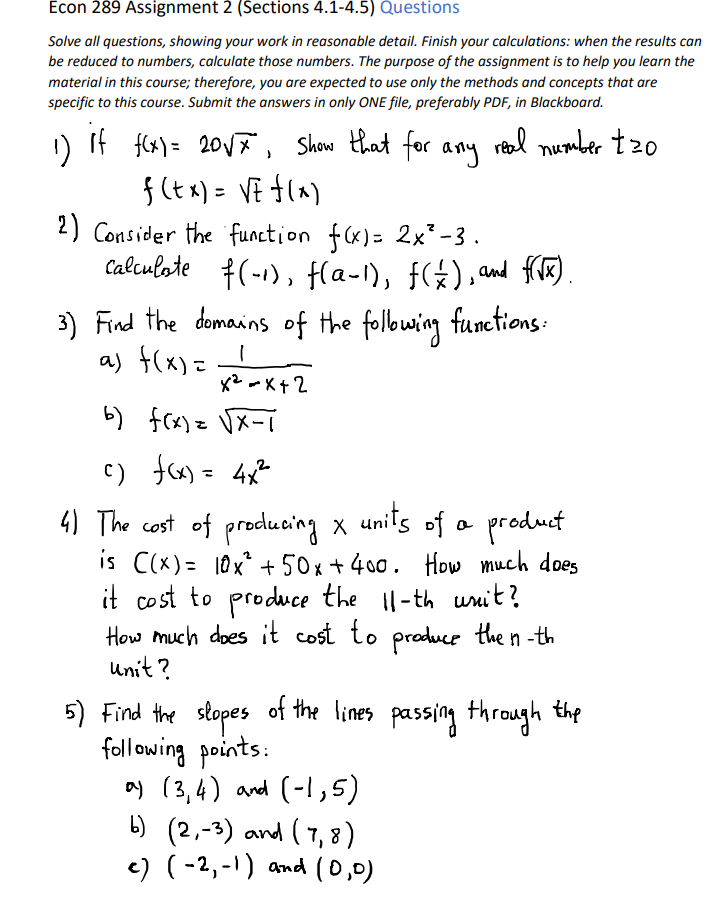 Econ 289 Assignment 2 (Sections 4.1-4.5) Questions
Solve all questions, showing your work in reasonable detail. Finish your calculations: when the results can
be reduced to numbers, calculate those numbers. The purpose of the assignment is to help you learn the
material in this course; therefore, you are expected to use only the methods and concepts that are
specific to this course. Submit the answers in only ONE file, preferably PDF, in Blackboard.
1) If f(x) = 20√x , show that for any real number t≥0
f(tx) = √t f(x)
2) Consider the function f(x) = 2x² -3 .
Calculate f(-1), f(a-1), f(1/x), and f(√x).
3) Find the domains of the following functions:
a) f(x) = 1/(x² - x + 2)
b) f(x) = √(x-1)
c) f(x) = 4x²
4) The cost of producing x units of a product
is C(x) = 10x² + 50x + 400. How much does
it cost to produce the 11-th unit?
How much does it cost to produce the n-th
unit?
5) Find the slopes of the lines passing through the
following points:
a) (3,4) and (-1,5)
b) (2,-3) and (7,8)
c) (-2,-1) and (0,0)